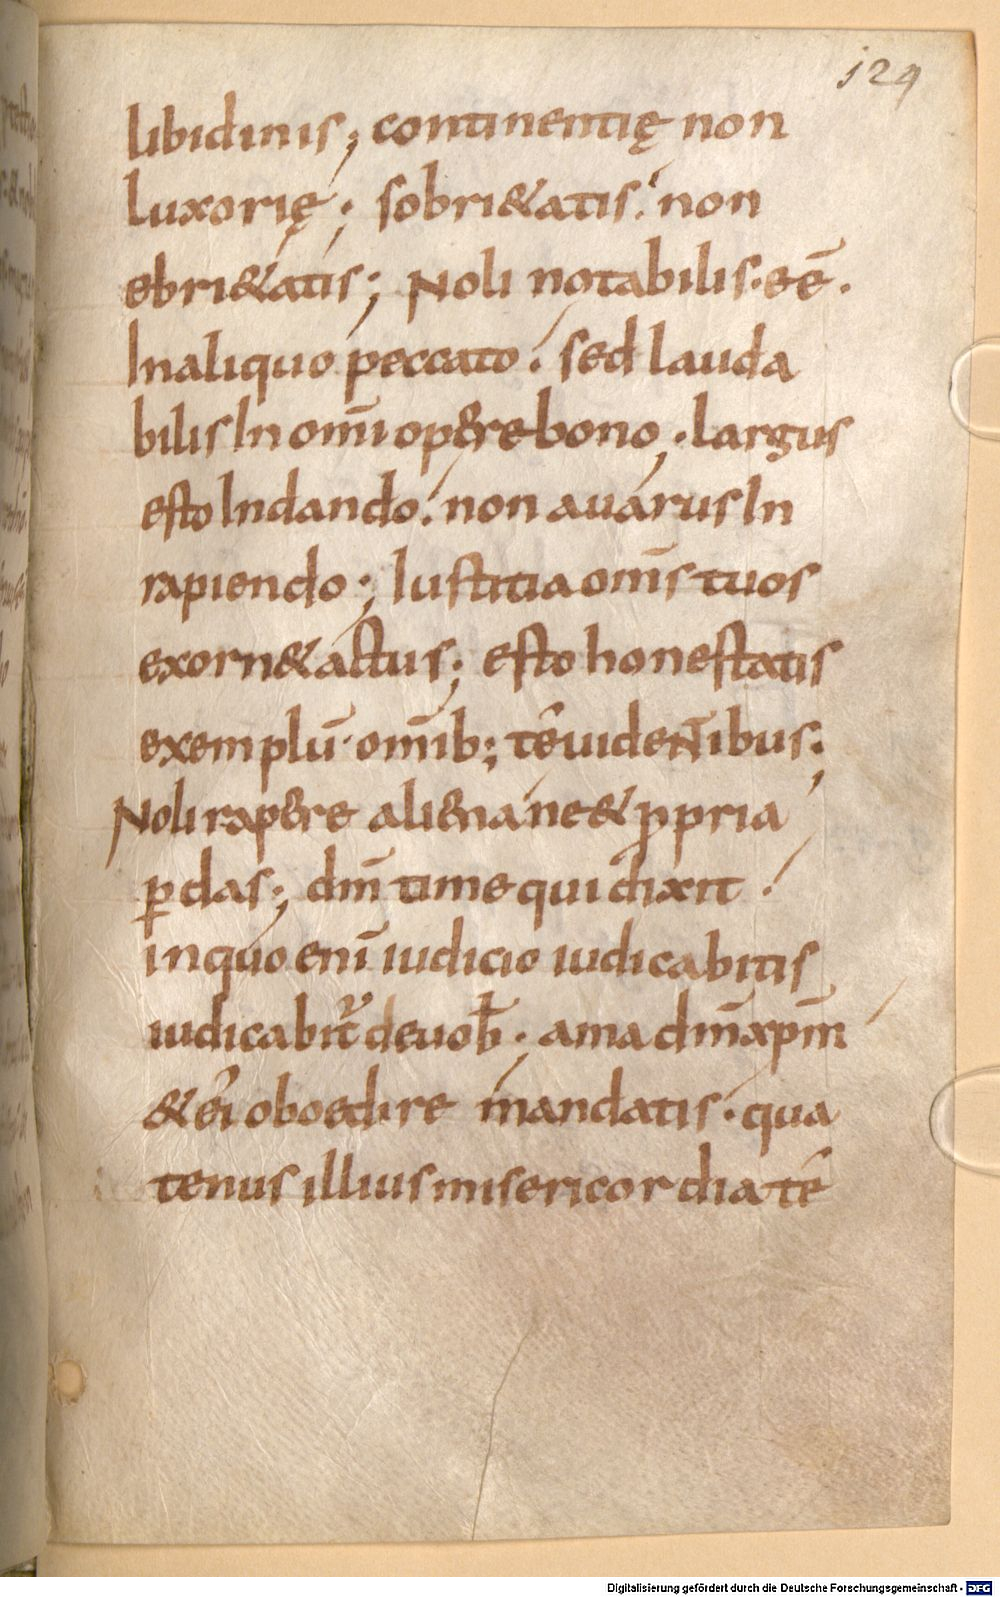 129
libidinis; continentię non
luxorię; sobri&atis. non
ebri&atis; Noli notabilis. eē.
In aliquo peccato. sed lauda
bilis In om̄i opere bono. largus
esto In dando. non auarus In
rapiendo; Iustitia om̄s tuos
exorn& actus; esto honestatis
exemplū. om̄ib; té uidentibus.
Noli rapere aliena ne & ꝓpria
ꝑdas; dn̄m time qui dixit.
in quo enī iudicio iudicabitis
iudicabit᷑ de uob̄. ama dn̄m xp̄m
& éi oboedire mandatis. qua
tenus illius misericordia té
Digitalisierung gefördert durch die Deutsche Forschungsgemeinschaft - DFG